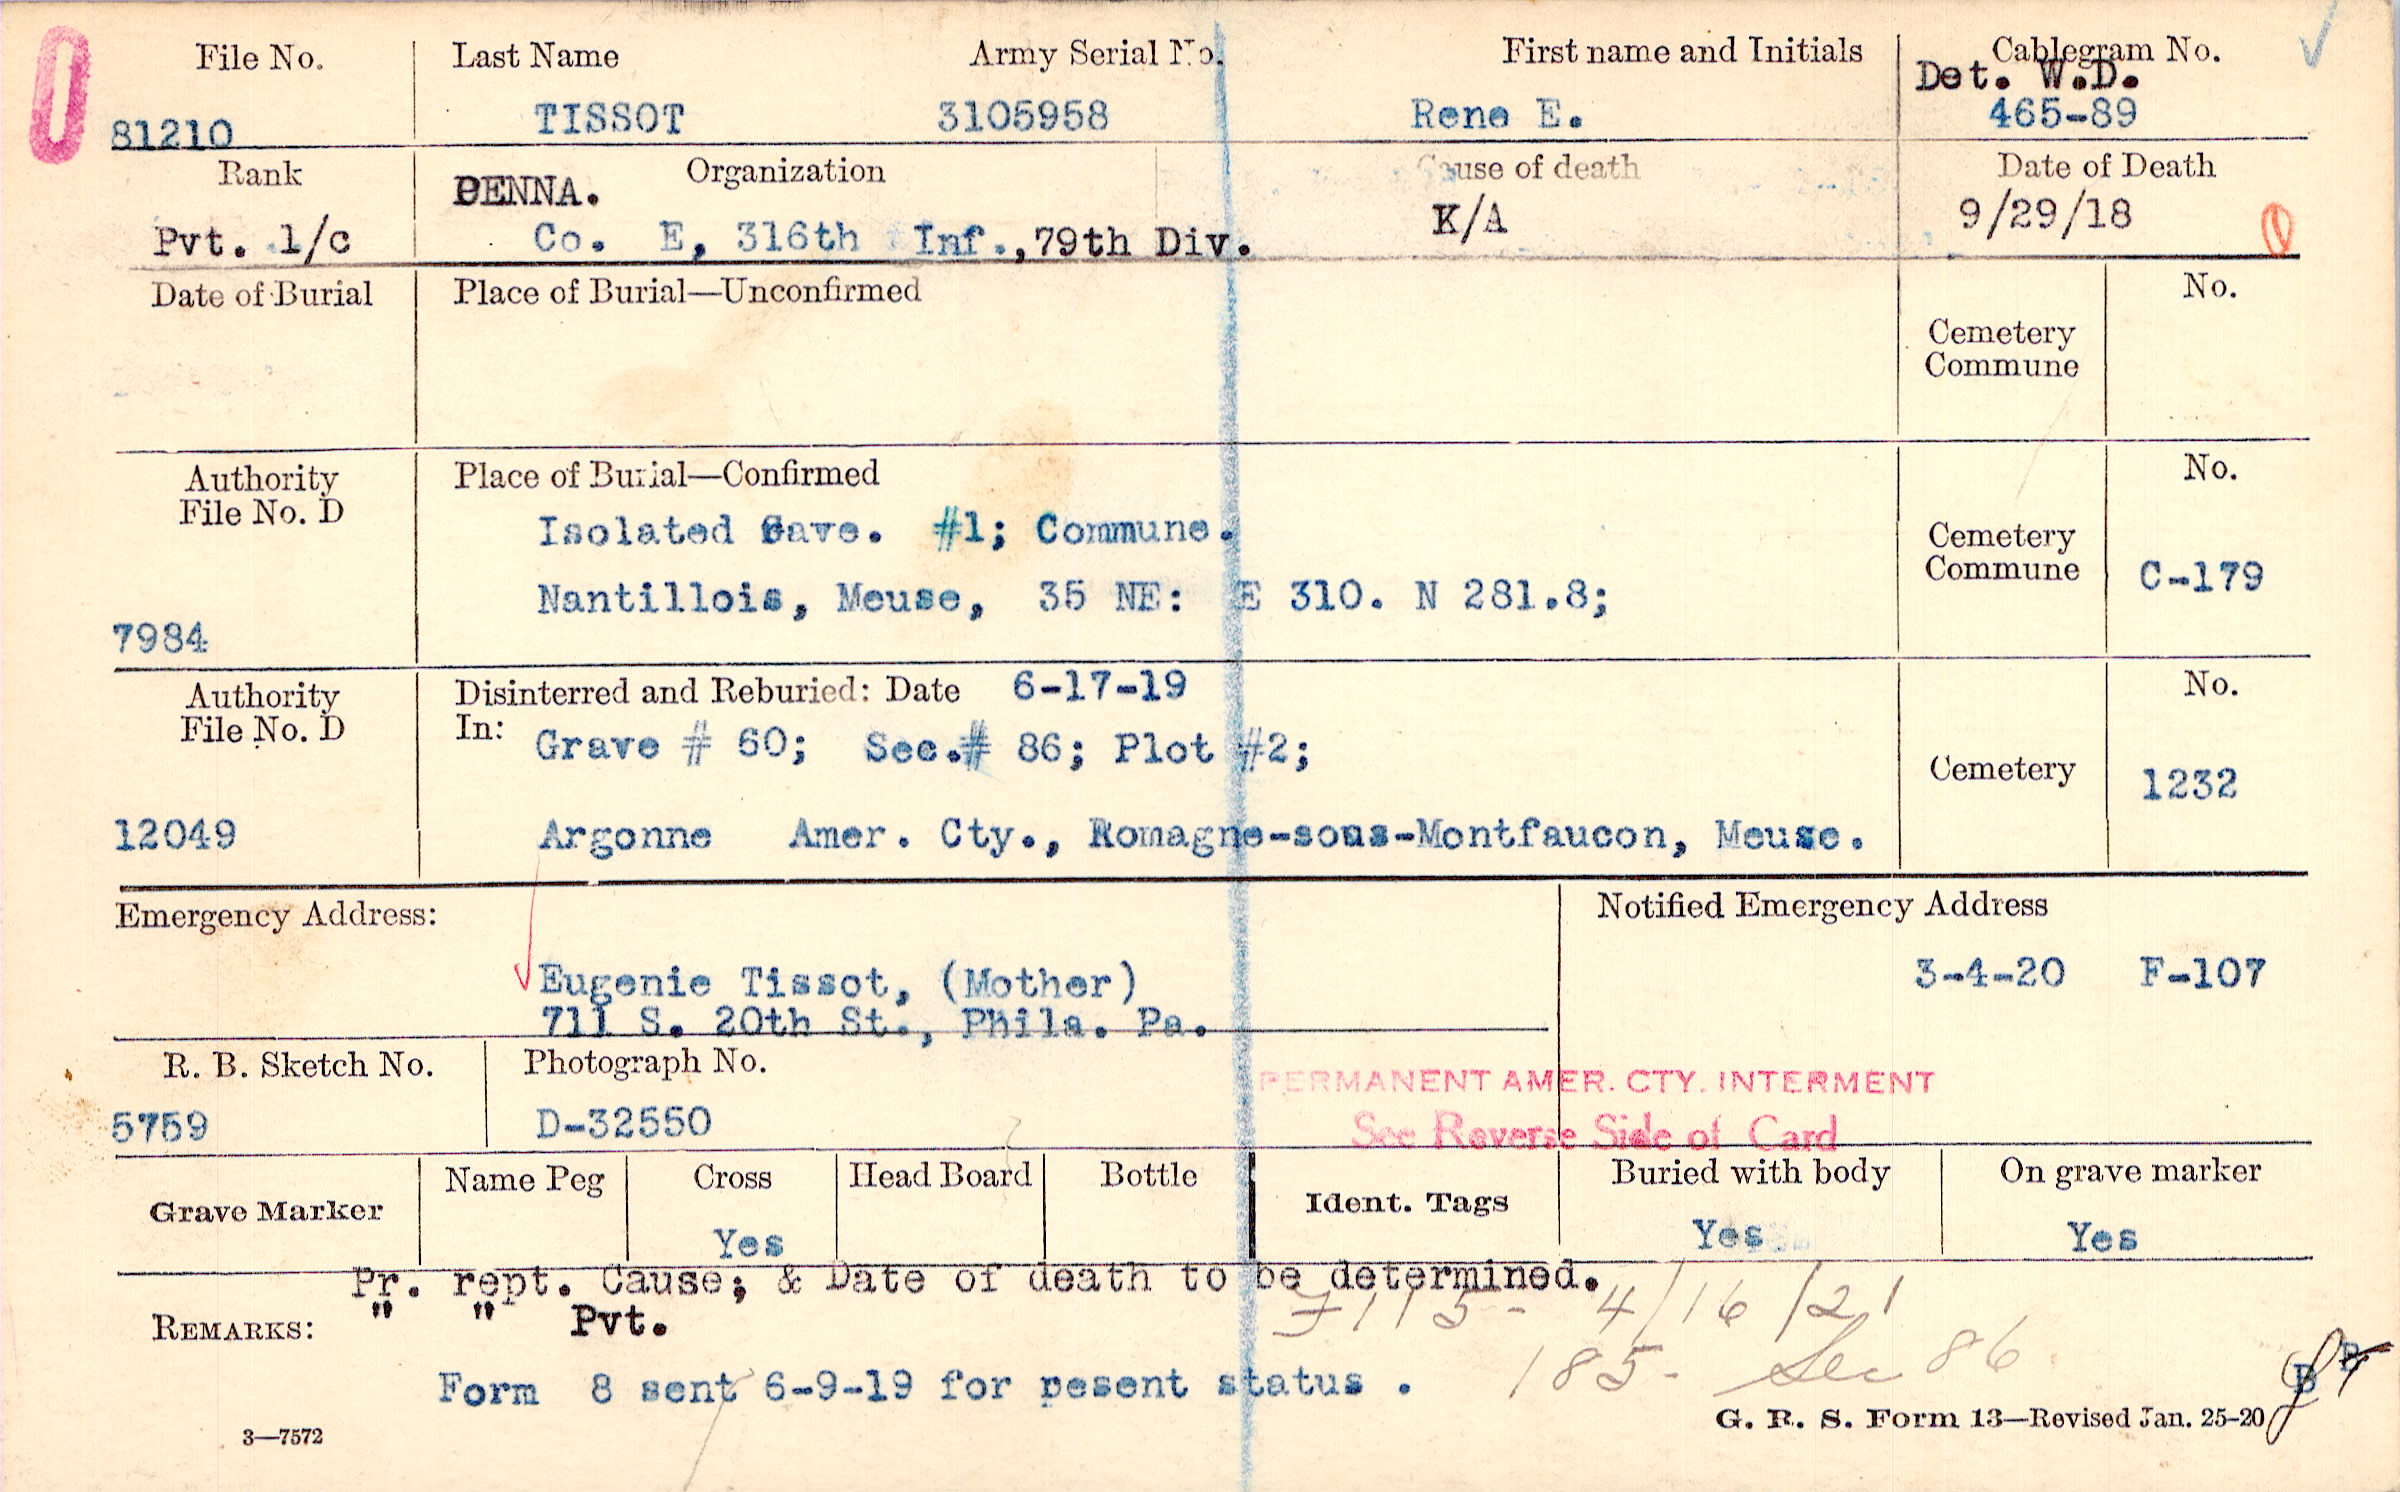 File No. Last Name Army Serial No. First name and Initials Cablegram No.
Det. W.D.
81210 TISSOT 3105958 Rene E. 465-89
Rank Organization Cause of death Date of Death
PENNA.
Pvt. 1/c Co. E, 316th Inf.,79th Div. K/A 9/29/18
Date of Burial Place of Burial—Unconfirmed No.
Cemetery
Commune
Authority Place of Burial—Confirmed No.
File No. D
Isolated Gave. #1; Commune. Cemetery
Commune C-179
Nantillois, Meuse, 35 NE: E 310. N 281.8;
7984
Authority Disinterred and Reburied: Date 6-17-19 No.
File No. D In: Grave # 60; Sec.# 86; Plot #2;
Cemetery 1232
12049 Argonne Amer. Cty., Romagne-sous-Montfaucon, Meuse.
Emergency Address: Notified Emergency Address
Eugenie Tissot, (Mother) 3-4-20 F-107
711 S. 20th St., Phila. Pa.
R. B. Sketch No. Photograph No.
PERMANENT AMER. CTY. INTERMENT
5759 D-32550 See Reverse Side of Card
Grave Marker Name Peg Cross Head Board Bottle Ident. Tags Buried with body On grave marker
Yes Yes Yes
Pr. rept. Cause; & Date of death to be determined.
" " Pvt. F115- 4/16/21
REMARKS:
185- Sec 86
Form 8 sent 6-9-19 for pesent status .
3—7572 G. R. S. Form 13—Revised Jan. 25-20